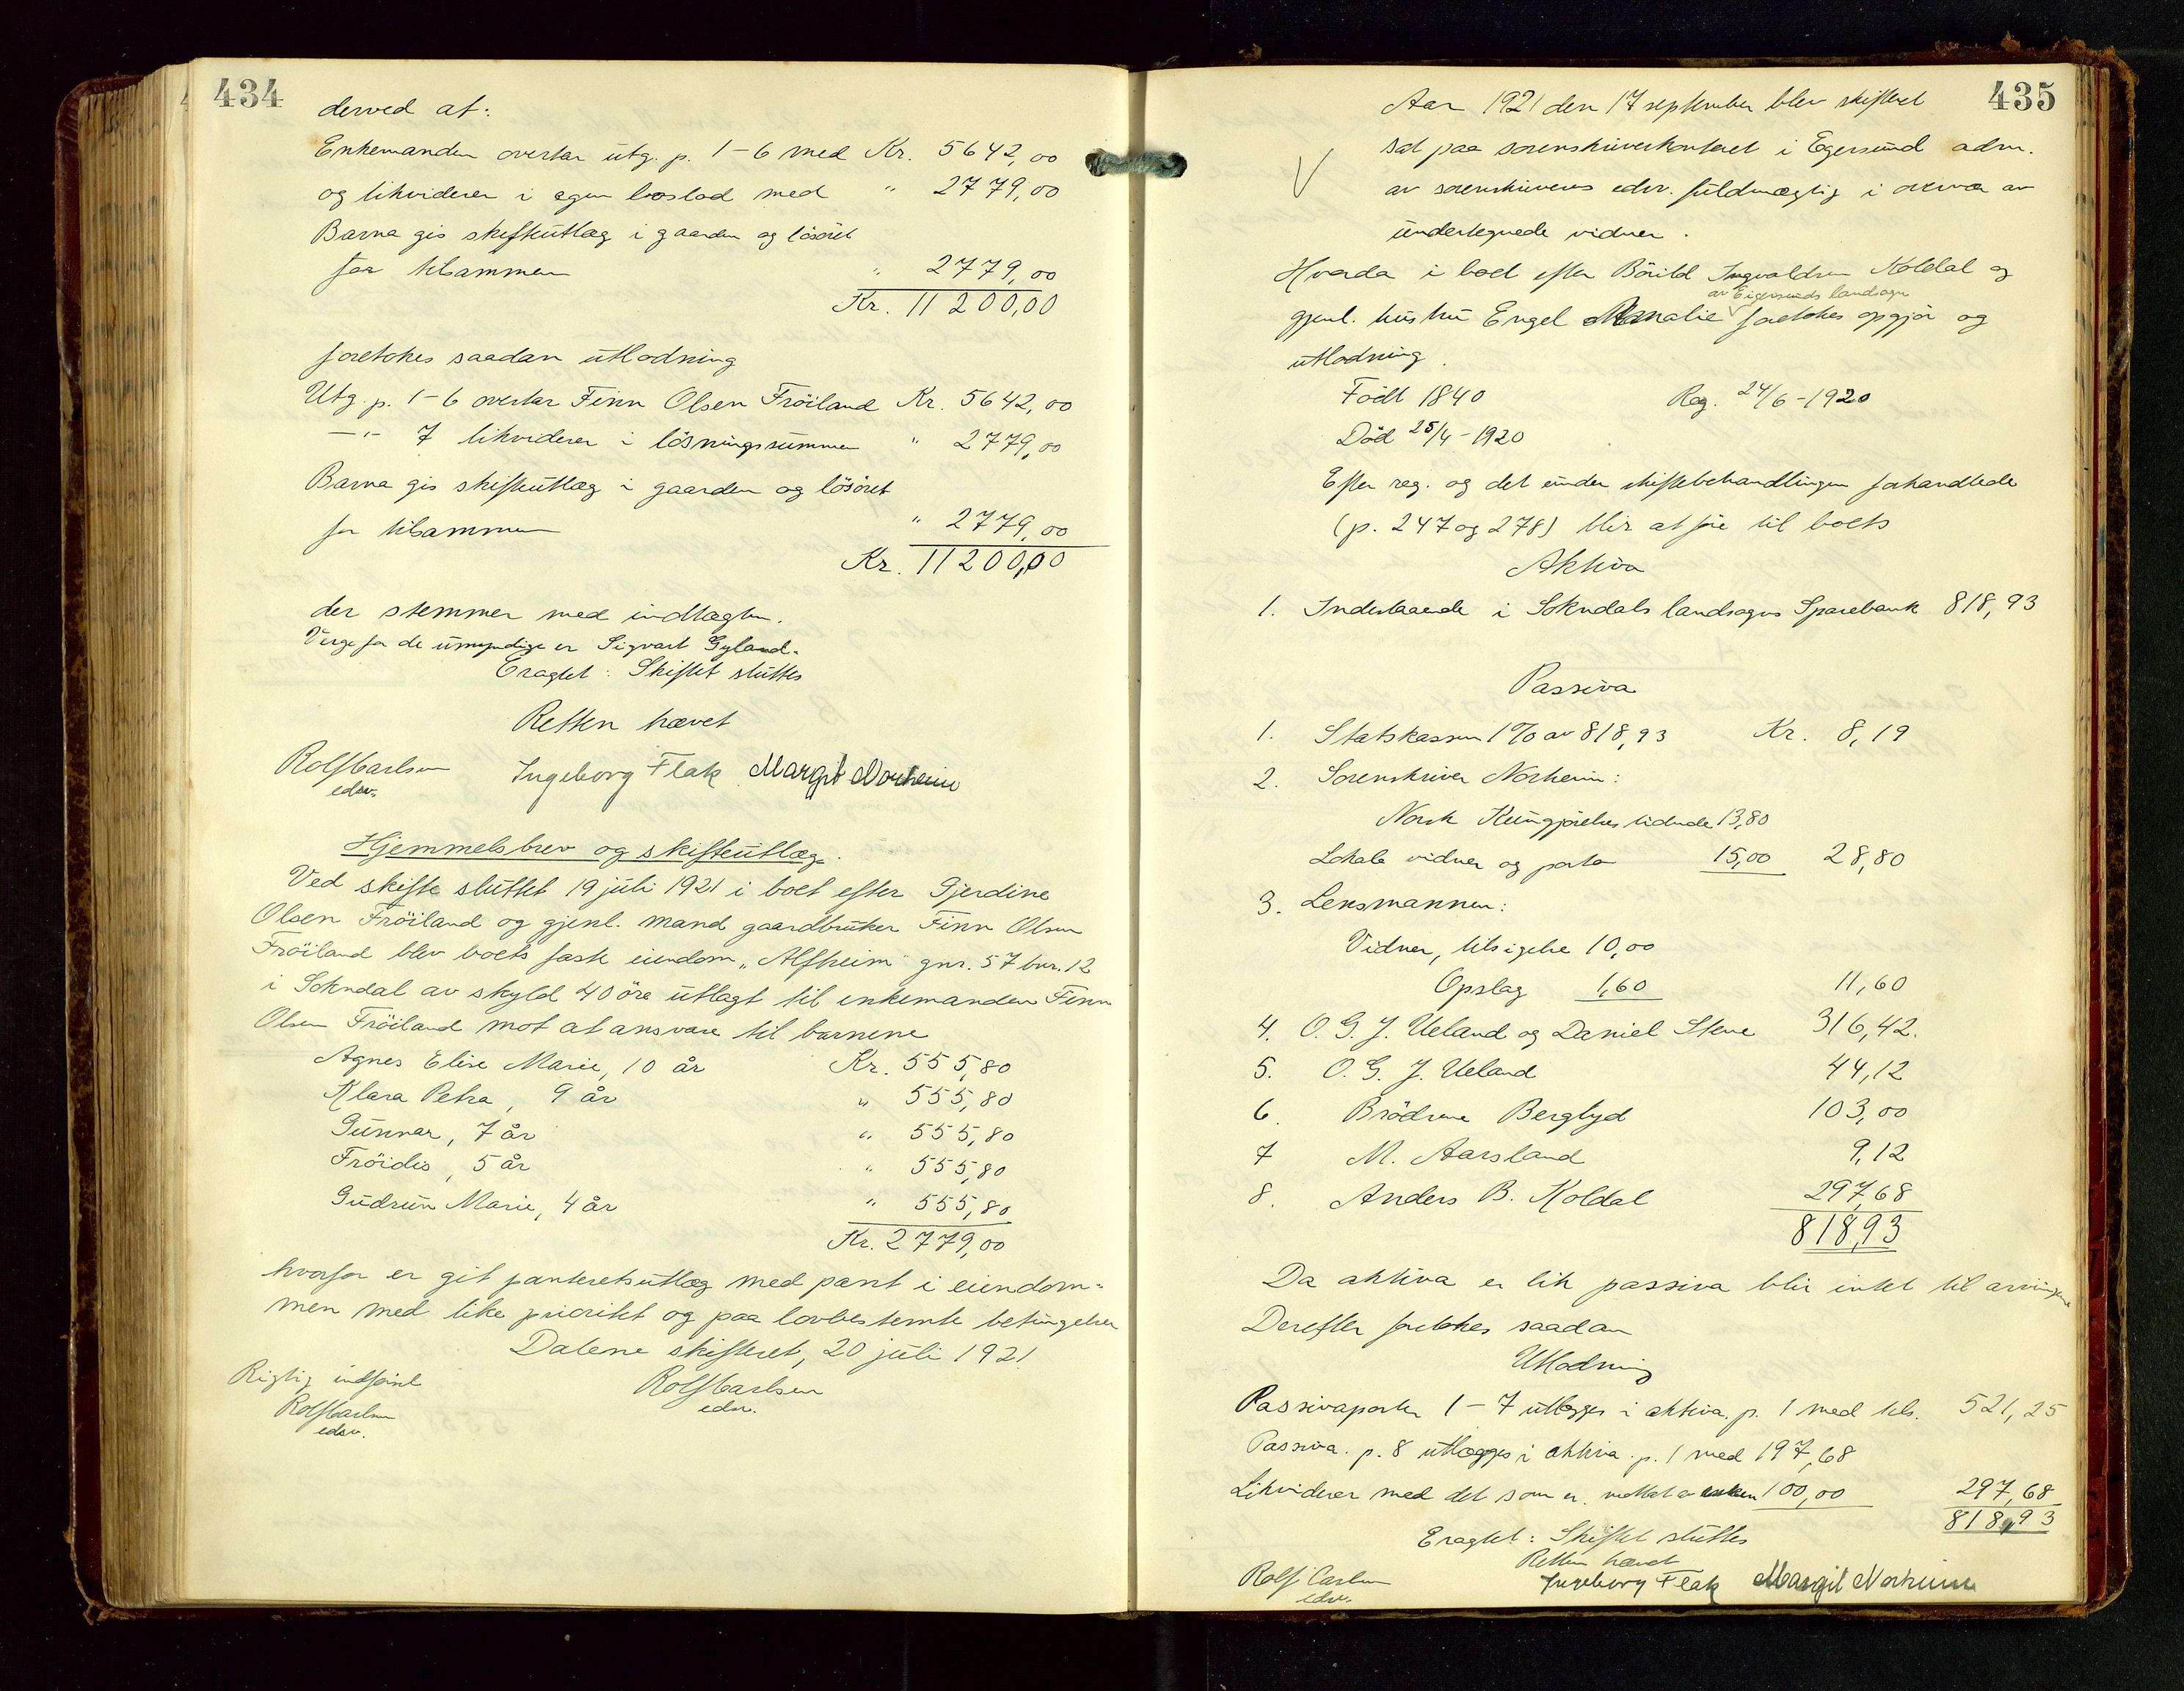 434
derved at:
Enkemanden overtar utg. p. 1-6 med Kr. 5642,00
og likviderer i egen boslod med " 2779,00
Barna gis skifteutlæg i gaarden og lösöret
for tilsammen " 2779,00
Kr. 11200,00
foretokes saadan utlodning
Utg. p. 1-6 overtar Finn Olsen Fröiland Kr. 5642,00
-"- 7 likviderer i lösningssummen " 2779,00
Barna gis skifteutlæg i gaarden og lösöret
for tilsammen " 2779,00
Kr. 11200,00
der stemmer med indtægten.
Verge for de umyndige er Sigvart Gyland.
Eragtet: Skiftet sluttes
Retten hævet
Rolf Carlsen Ingeborg Flak Margit Norheim
edsv.
Hjemmelsbrev og skifteutlæg.
Ved skifte sluttet 19 juli 1921 i boet efter Gjerdine
Olsen Fröiland og gjenl. mand gaardbruker Finn Olsen
Fröiland blev boets faste eiendom „Alfheim" gnr. 57 bnr. 12
i Sokndal av skyld 40 öre utlagt til enkemanden Finn
Olsen Fröiland mot at ansvare til barnene
Agnes Elise Marie, 10 år Kr. 555,80
Klara Petra, 9 år " 555,80
Gunnar, 7 år " 555,80
Fröidis, 5 år " 555,80
Gudrun Marie, 4 år " 555,80
Kr. 2779,00
hvorfor er git panteretsutlæg med pant i eiendom=
men med like prioritet og paa lovbestemte betingelser
Dalene skifteret, 20 juli 1921
Rigtig indført Rolf Carlsen
Rolf Carlsen edsv.
edsv.
435
Aar 1921 den 17 september blev skifteret
sat paa sorenskriverkontoret i Egersund adm.
av sorenskriverens edsv. fuldmægtig i overvær av
undertegnede vidner.
Hvorda i boet efter Börild Ingvaldsen Koldal og
av Eigersunds landsogn
gjenl. hustru Engel Amalie foretokes opgjör og
utlodning.
Född 1840 Reg. 24/6-1920
Död 25/4-1920
Efter reg. og det under skiftebehandlingen forhandlede
(p. 247 og 278) blir at före til boets
Aktiva
1. Indestaaende i Sokndals landsogns Sparebank 818,93
Passiva
1. Statskassen 1% av 818,93 Kr. 8,19
2. Sorenskriver Norheim:
Norsk Kungjörelses tidende 13,80
Lokale vidner og porto 15,00 28,80
3. Lensmannen:
Vidner, tilsigelse 10,00
Opslag 1,60 11,60
4. O. G. J. Ueland og Daniel Stene 316,42.
5. O. G. J. Ueland 44,12
6. Brödrene Berglyd 103,00
7 M. Aarsland 9,12
8. Anders B. Koldal 297,68
818,93
Da aktiva er lik passiva blir intet til arvingene
Derefter foretokes saadan
Utlodning
Passivaposter 1-7 utlægges i aktiva. p. 1 med tils. 521,25
Passiva. p. 8 utlægges i aktiva. p. 1 med 197,68
Likviderer med det som er mottat av enken 100,00 297,68
818,93
Eragtet: Skiftet sluttes
Retten hævet
Rolf Carlsen Ingeborg Flak Margit Norheim
edsv.